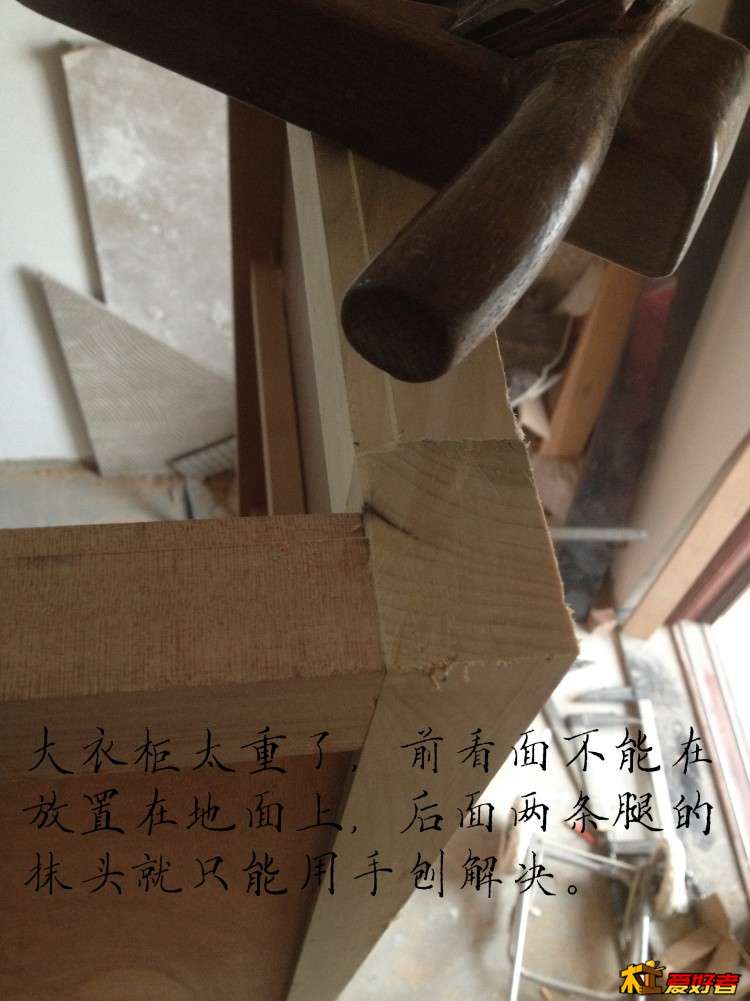 大衣柜太重了，前看面不能在
放置在地面上，后面两条腿的
抹头就只能用手刨解决。
木工爱好者